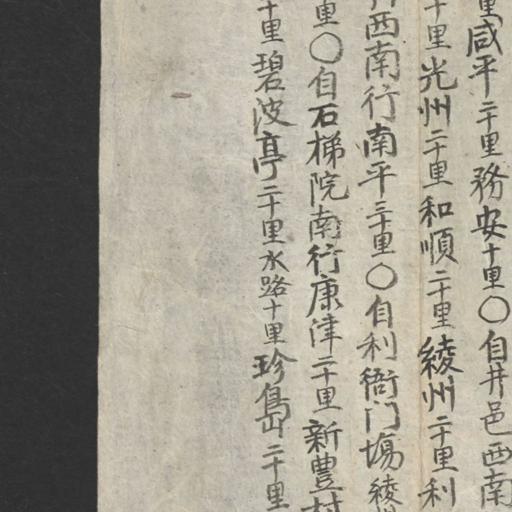 里咸平二十里務安十里〇自井邑西南
十里光州二十里和順二十里綾州二十里利
西南行南平三十里〇自利衙門場綾
里〇自石梯院南行康津二十里新豊村
十里碧波亭二十里水路十里珍島二十里